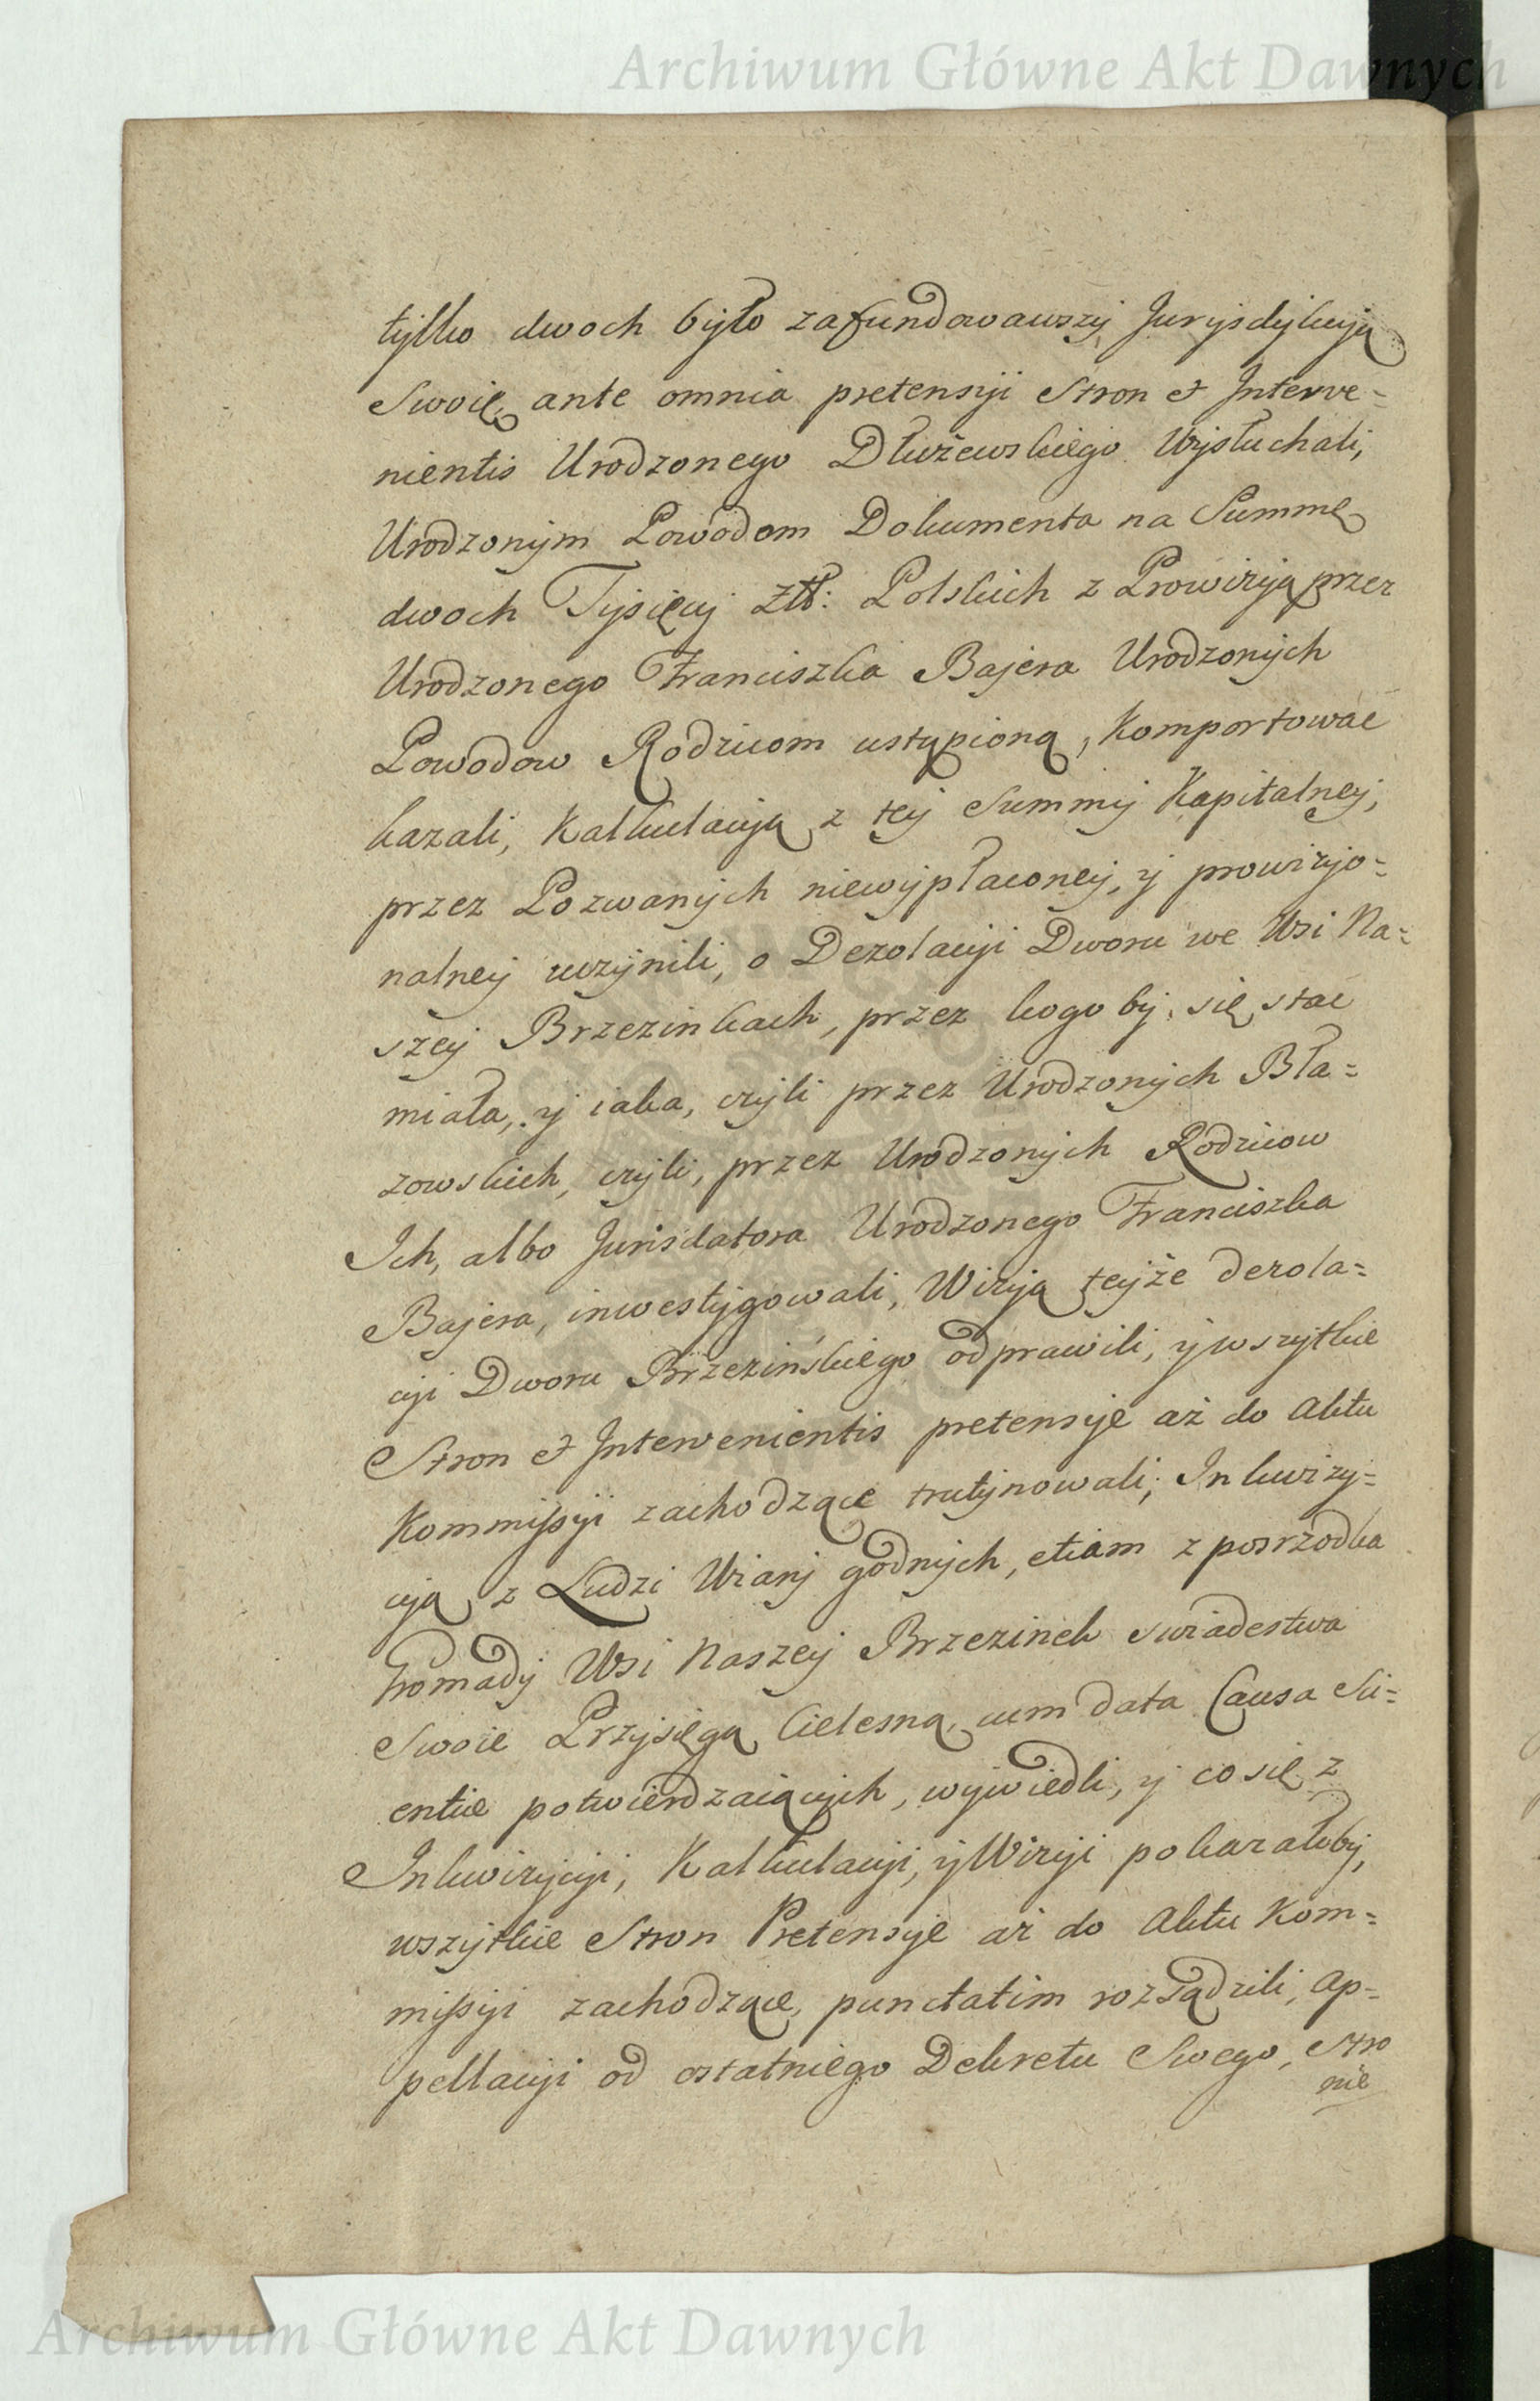 Archiwum Główne Akt Dawnych
tylko dwoch było zafundowawszy Juryzdykcyą
Swoię, ante omnia pretensyi Stron et Interve=
nientis Urodzonego Dłużewskiego Wysłuchali,
Urodzonym Powodom Dokumenta na Summę
dwoch Tysięcy Złł: Polskich z Prowizyą przez
Urodzonego Franciszka Bajera Urodzonych
Powodow Rodzicom ustąpioną, Komportować
kazali, Kalkulacyą z tey Summy Kapitalney,
przez Pozwanych niewypłaconey, y prowizyo=
nalney uczynili, o Dezolacyi Dworu we Wsi Na=
szey Brzezinkach, przez kogo by się stać
miała, y iaka, czyli przez Urodzonych Bła=
zowskich, czyli, przez Urodzonych Rodzicow
Ich, albo Jurisdatora Urodzonego Franciszka
Bajera, inwestygowali, Wizyą teyże dezola=
cyi Dworu Brzezińskiego odprawili, y wszytkie
Stron et Intervenientis pretensye aż do Aktu
Kommissyi zachodzące trutynowali, Inkwizy=
cyą z Ludzi Wiary godnych, etiam z posrzodka
hromady Wsi Naszey Brzezinek swiadestwa
Swoie Przysięgą Cielesną cum data Causa Sci=
entie potwierdzaiących, wywiedli, y co się z
Inkwizycyi, Kalkulacyi, y Wizyi pokazałoby,
wszytkie Stron Pretensye aż do Aktu Kom=
missyi zachodzące, punctatim rozsądzili, Ap=
pellacyi od ostatniego Dekretu Swego, Stro
nie
Archiwum Główne Akt Dawnych